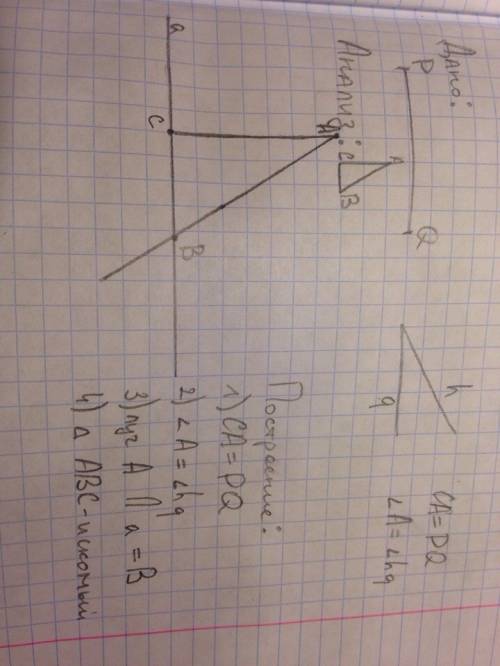 Дано:
P
Q
h
q
CA=PQ
∠A=∠hq
Анализ:
A
C
B
A
a
C
B
Построение:
1) CA=PQ
2) ∠A=∠hq
3) луч A ∩ a = B
4) △ ABC - искомый